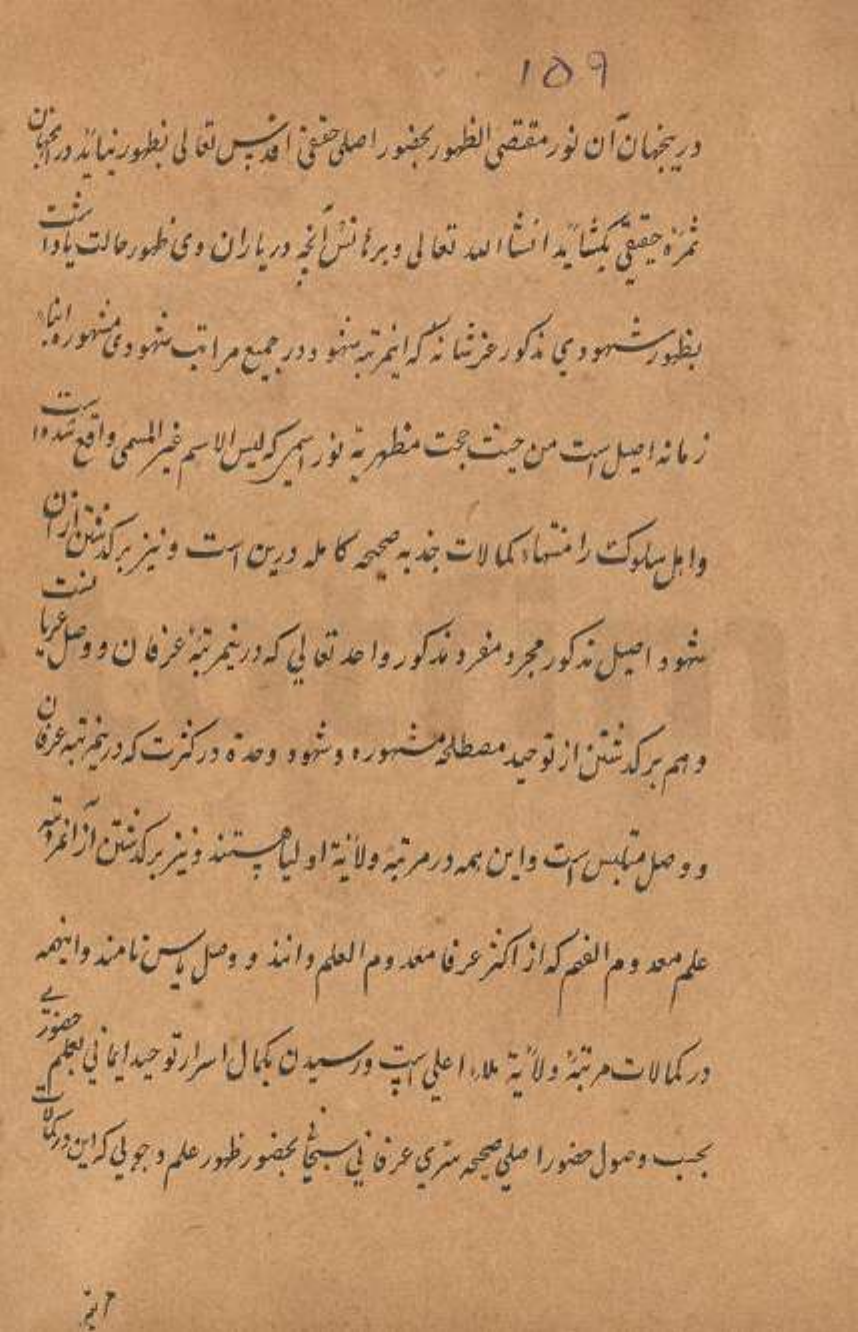 ۱۵۹
درینجهان آن نور مقتضی الظهور بحضور اصلی حقیقی اقدس تعالی بظهور نیاید در آنجهان
ثمره حقیقی بگشاید انشاالله تعالی و برهانش آنچه در یاران وی ظهور حالت یادداشت
بظهور شهودی مذکور عزشانه که اینمرتبه شهود در جمیع مراتب شهودی مشهوره ابنای
زمانه اصیل است من حیث جهت مظهریة نور اسمی که لیس الاسم غیر المسمی واقع شده است
و اهل سلوک را منتهاء کمالات جذبه صحیحه کامله درین است و نیز برگذشتن از آن
شهود اصیل مذکور مجرد مفرد مذکور واحد تعالی که درینمرتبۀ عرفان و وصل عریانست
و هم برگذشتن از توحید مصطلحه مشهوره و شهود وحدة در کثرت که درینمرتبه عرفان
و وصل متلبس است و این همه در مرتبۀ ولایة اولیا هستند و نیز برگذشتن از آنمراتبه
علم معدوم الفهم که از اکثر عرفا معدوم العلم دانند و وصل یاس نامند و اینهمه
در کمالات مرتبۀ ولایة ملاء اعلی است و رسیدن بکمال اسرار توحید ایمانی بعلم حضوری
بحسب وصول حضور اصلی صحیحه سری عرفانی سبحانی بحضور ظهور علم وجوبی که این در کمالات